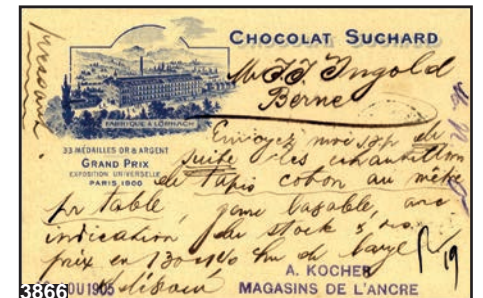 CHOCOLAT SUCHARD
FABRIQUE À LÖRRACH
33 MÉDAILLES OR & ARGENT
GRAND PRIX
EXPOSITION UNIVERSELLE
PARIS 1900
pressant
Ingold
Berne
Envoyez moi svp de
suite les échantillon
de tapis coton au mètre
pr table, genre lavable, avec
indication du stock &
prix en 130 de large
A. KOCHER
MAGASINS DE L'ANCRE
OU 1905
19
3866